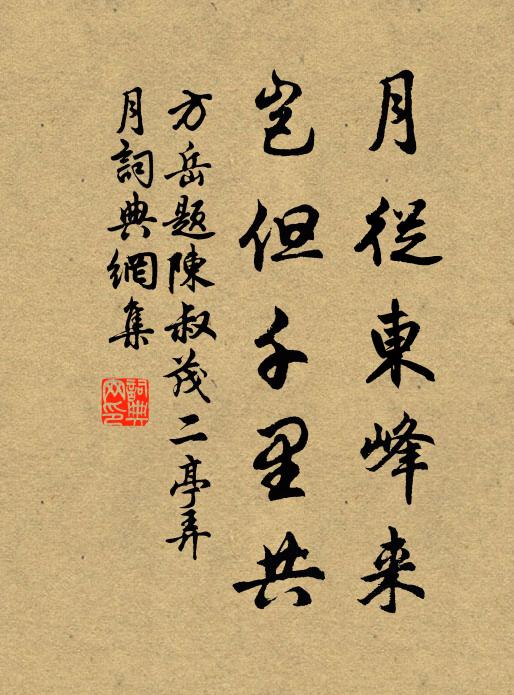 月從東峰来
岂但千里共
方岳题陳叔茂二亭弄
月詞典網集
詞典